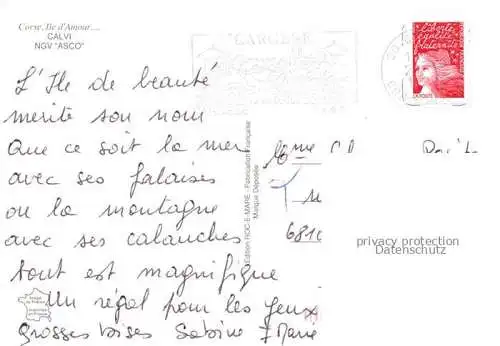 Corse, Ile d'Amour....
CALVI
NGV "ASCO"
CARGESE
liberté
égalité
fraternité
LA POSTE
L'Ile de beauté
mérite son nom
Que ce soit la mer
avec ses falaises
ou la montagne
avec ses calanches
tout est magnifique
Un régal pour les yeux
grosses bises Sabine & Marie
Edition HOC-E-MARE - Fabrication Française
Marque Déposée
privacy protection
Datenschutz